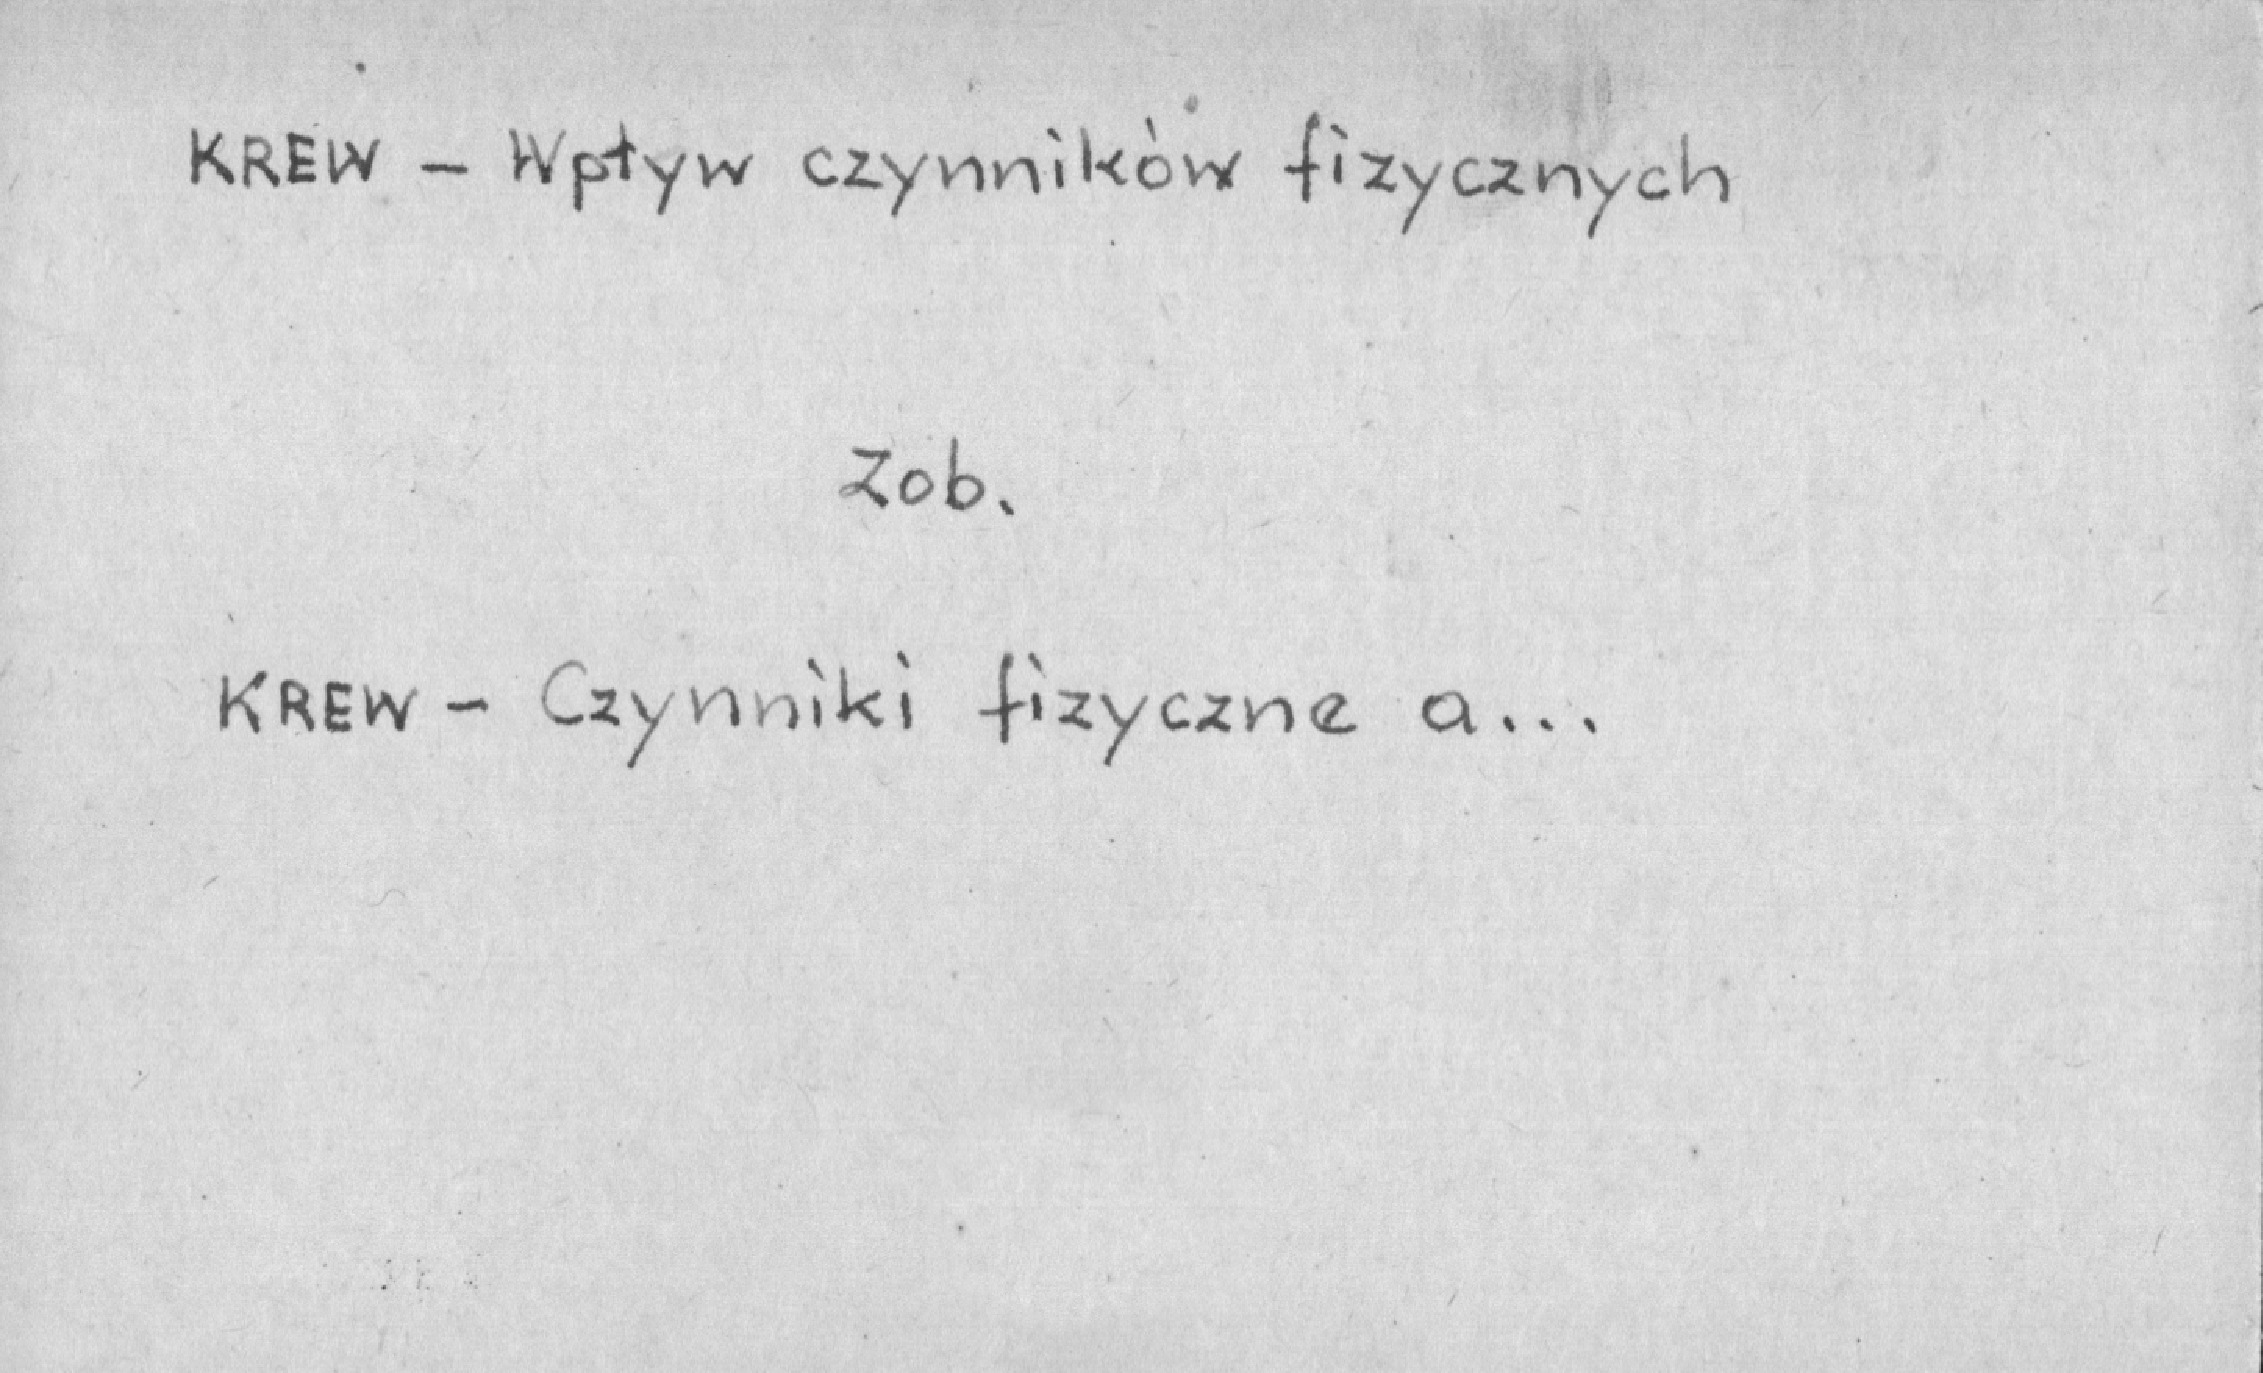 KREW – Wpływ czynników fizycznych
Zob.
KREW – Czynniki fizyczne a...